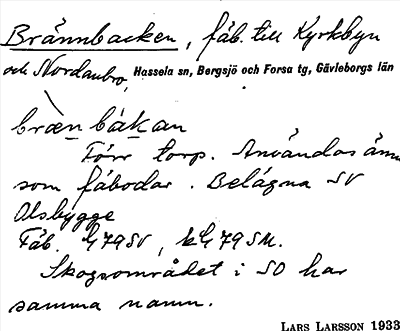 Brännbacken, fäb. till Kyrkbyn
och Nordanbro, Hassela sn, Bergsjö och Forsa tg, Gävleborgs län
bræn bák an
Förr torp. Användas ännu
som fäbodar. Belägna SV
Älsbygge
Fäb. G79SV, kG79SM.
Skogsområdet i SO har
samma namn.
LARS LARSSON 1933